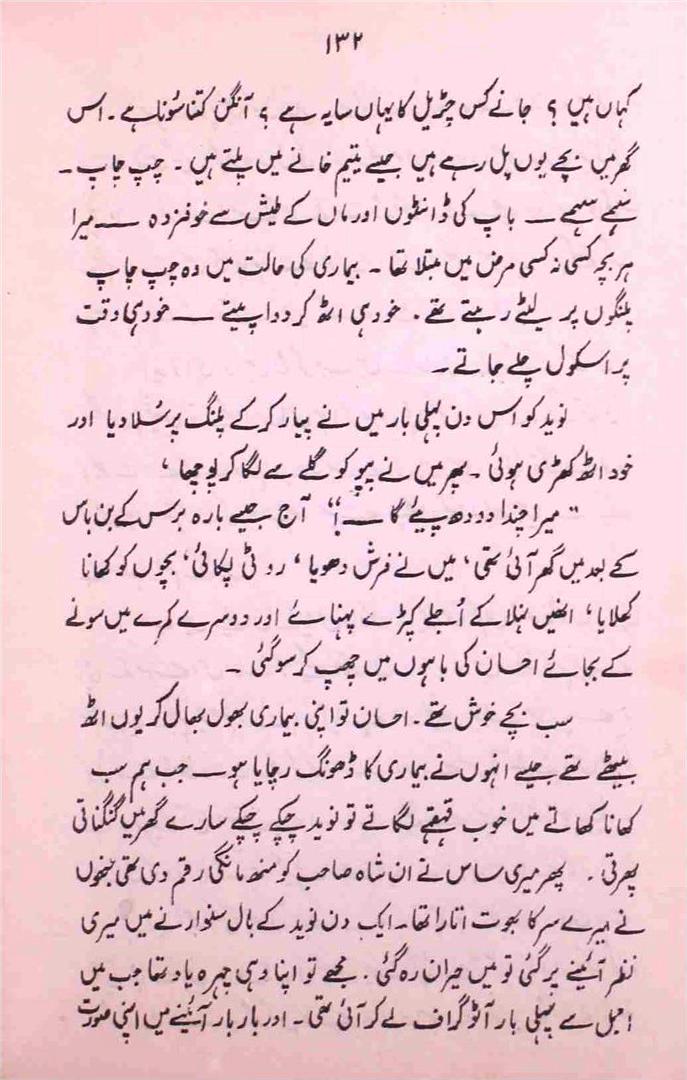 ۱۳۲
کہاں ہیں ؟ جانے کس چڑیل کا یہاں سایہ ہے ؟ آنگن کتنا سُونا ہے ۔ اس
گھر میں بچے یوں پل رہے ہیں جیسے یتیم خانے میں پلتے ہیں ۔ چپ چاپ ۔
سہمے سہمے ـــ باپ کی ڈانٹوں اور ماں کے طیش سے خوفزدہ ـــ میرا
ہر بچہ کسی نہ کسی مرض میں مبتلا تھا ۔ بیماری کی حالت میں وہ چپ چاپ
پلنگوں پر لیٹے رہتے تھے ۔ خود ہی اٹھ کر دوا پیتے ـــ خود ہی وقت
پر اسکول چلے جاتے ۔
نوید کو اس دن پہلی بار میں نے پیار کر کے پلنگ پر سُلا دیا اور
خود اٹھ کھڑی ہوئی ۔ پھر میں نے پپو کو گلے سے لگا کر پوچھا ،
" میرا چندا دودھ پیئے گا ـــ !" آج جیسے بارہ برس کے بن باس
کے بعد میں گھر آئی تھی ، میں نے فرش دھویا ، روٹی پکائی ، بچوں کو کھانا
کھلایا ، انھیں نہلا کے اُجلے کپڑے پہنائے اور دوسرے کمرے میں سونے
کے بجائے احسان کی باہوں میں چھپ کر سو گئی ۔
سب بچے خوش تھے ۔ احسان تو اپنی بیماری بھول بھال کر یوں اٹھ
بیٹھے تھے جیسے انہوں نے بیماری کا ڈھونگ رچایا ہو ـــ جب ہم سب
کھانا کھاتے میں خوب قہقہے لگاتے تو نوید چپکے چپکے سارے گھر میں گنگناتی
پھرتی ۔ پھر میری ساس نے ان شاہ صاحب کو منھ مانگی رقم دی تھی جنھوں
نے میرے سر کا بھوت اتارا تھا ۔ ایک دن نوید کے بال سنوارنے میں میری
نظر آئینے پر گئی تو میں حیران رہ گئی ۔ مجھے تو اپنا وہی چہرہ یاد تھا جب میں
اجمل سے پہلی بار آٹو گراف لے کر آئی تھی ۔ اور بار بار آئینے میں اپنی صورت